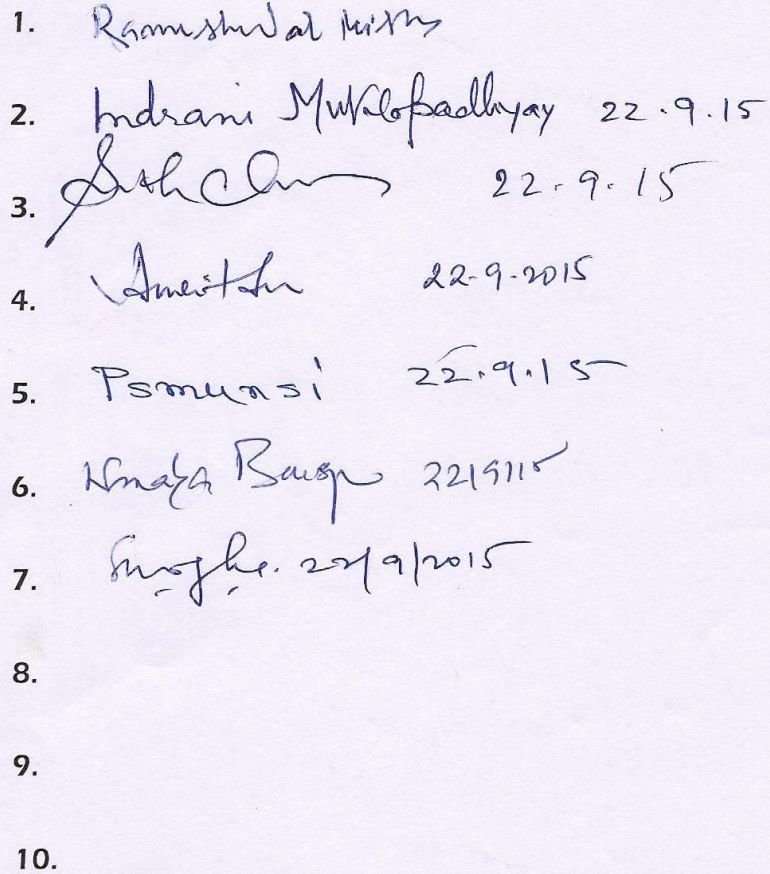 1. Rameshwar Mishra
2. Indrani Mukhopadhyay 22.9.15
3. 22.9.15
4. 22-9-2015
5. Psmunsi 22.9.15
6. 22/9/15
7. 22/9/2015
8.
9.
10.